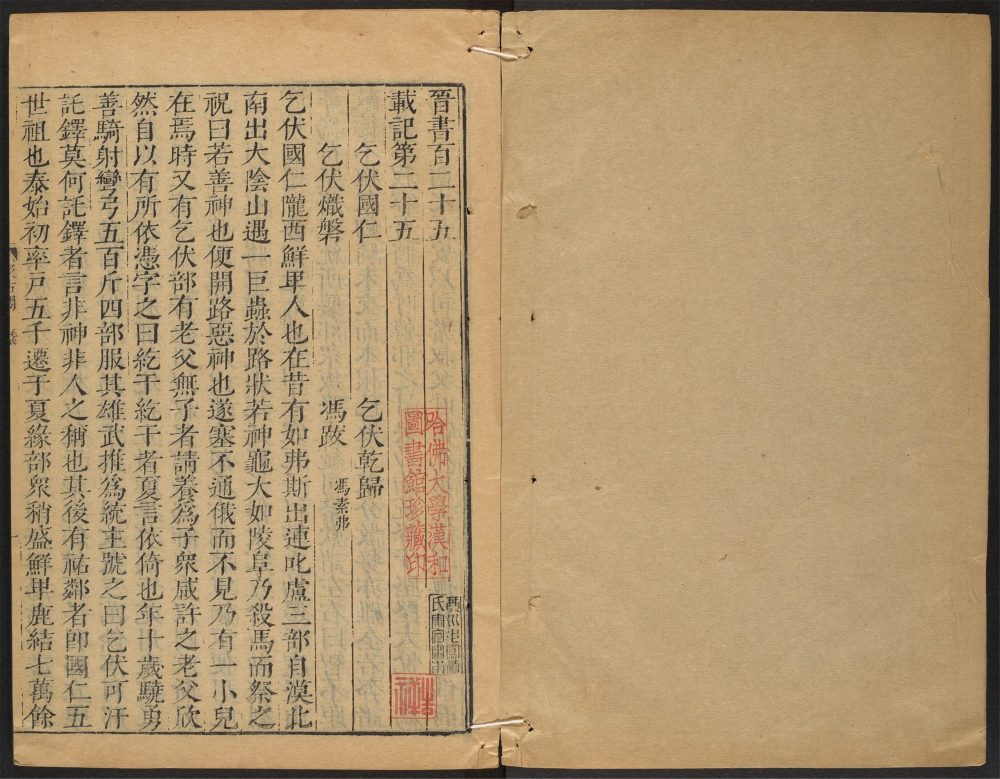 晉書百二十五
載記第二十五
乞伏國仁 乞伏乾歸
乞伏熾磐 馮跋 馮素弗
乞伏國仁隴西鮮卑人也在昔有如弗斯出連叱盧三部自漠北
南出大陰山遇一巨蟲於路狀若神龜大如陵阜乃殺馬而祭之
祝曰若善神也便開路惡神也遂塞不通俄而不見乃有一小兒
在焉時又有乞伏部有老父無子者請養爲子衆咸許之老父欣
然自以有所依憑字之曰紇干紇干者夏言依倚也年十歲驍勇
善騎射彎弓五百斤四部服其雄武推爲統主號之曰乞伏可汗
託鐸莫何託鐸者言非神非人之稱也其後有祐鄰者卽國仁五
世祖也泰始初率戸五千遷于夏緣部衆稍盛鮮卑鹿結七萬餘
哈佛大學漢和
圖書館珍藏印